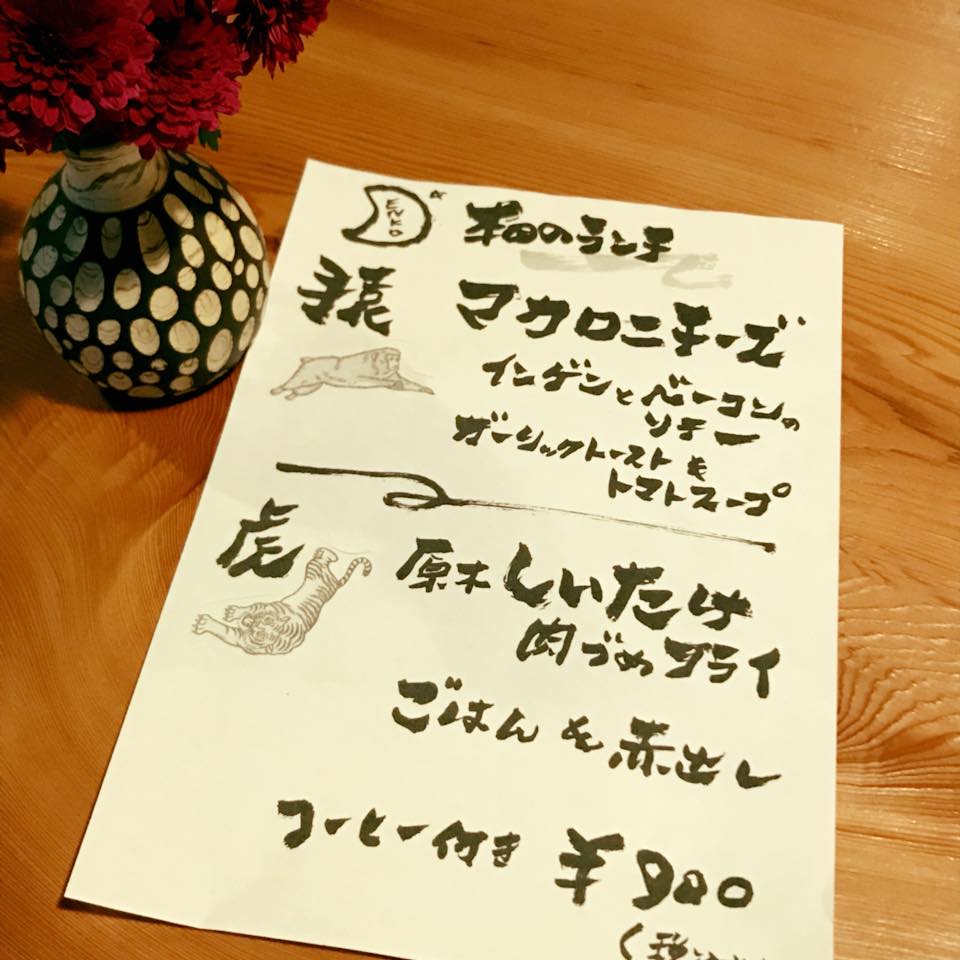 ENKO
本日のランチ
猿
マカロニチーズ
インゲンとベーコンの
ソテー
ガーリックトースト &
トマトスープ
虎
原木しいたけ
肉づめフライ
ごはん & 赤出し
コーヒー付き ¥900
(税